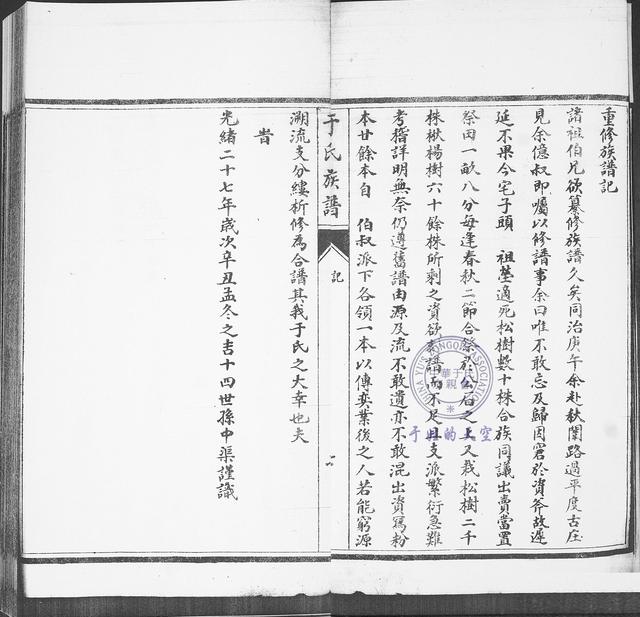 重修族譜記
諸祖伯兄欲纂修族譜久矣同治庚午余赴秋闈路過平度古庄
見余億叔即囑以修譜事余曰唯不敢忘及歸因窘於資斧故遲
延不果今宅子頭 祖塋適死松樹數十株合族同議出賣當置
祭田一畝八分每逢春秋二節合祭於公石之上又栽松樹二千
株楸楊樹六十餘株所剩之資欲奏譜而不足且支派繁衍急難
考稽詳明無奈仍遵舊譜由源及流不敢遺亦不敢混出資寫粉
本廿餘本自 伯叔派下各領一本以傳奕業後之人若能窮源
于氏族譜
記
溯流支分縷析修為合譜其我于氏之大幸也夫
旹
光緒二十七年歲次辛丑孟冬之吉十四世孫中渠謹識
CHINA YU'S CONGQIN ASSOCIATION
中華于氏
于姓的天空